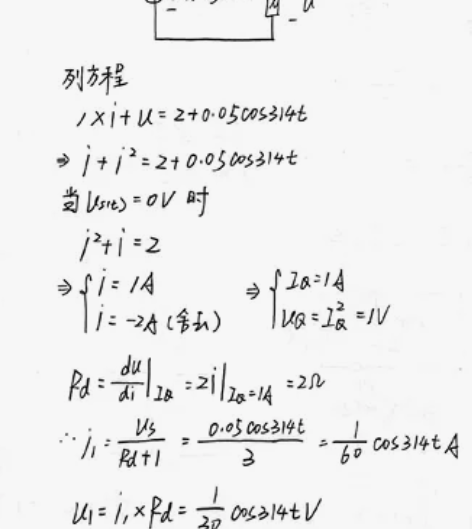 列方程
1×i+u=2+0.05cos314t
⇒ i+i²=2+0.05cos314t
当 Us(t)=0V 时
i²+i=2
⇒ { i=1A ⇒ { IQ=1A
i=-2A (舍去) UQ=IQ²=1V
Rd=du/di|IQ=2i|IQ=1A=2Ω
∴ i₁=Us/(Rd+1)=0.05cos314t/3=1/60 cos314t A
u₁=i₁×Rd=1/30 cos314t V